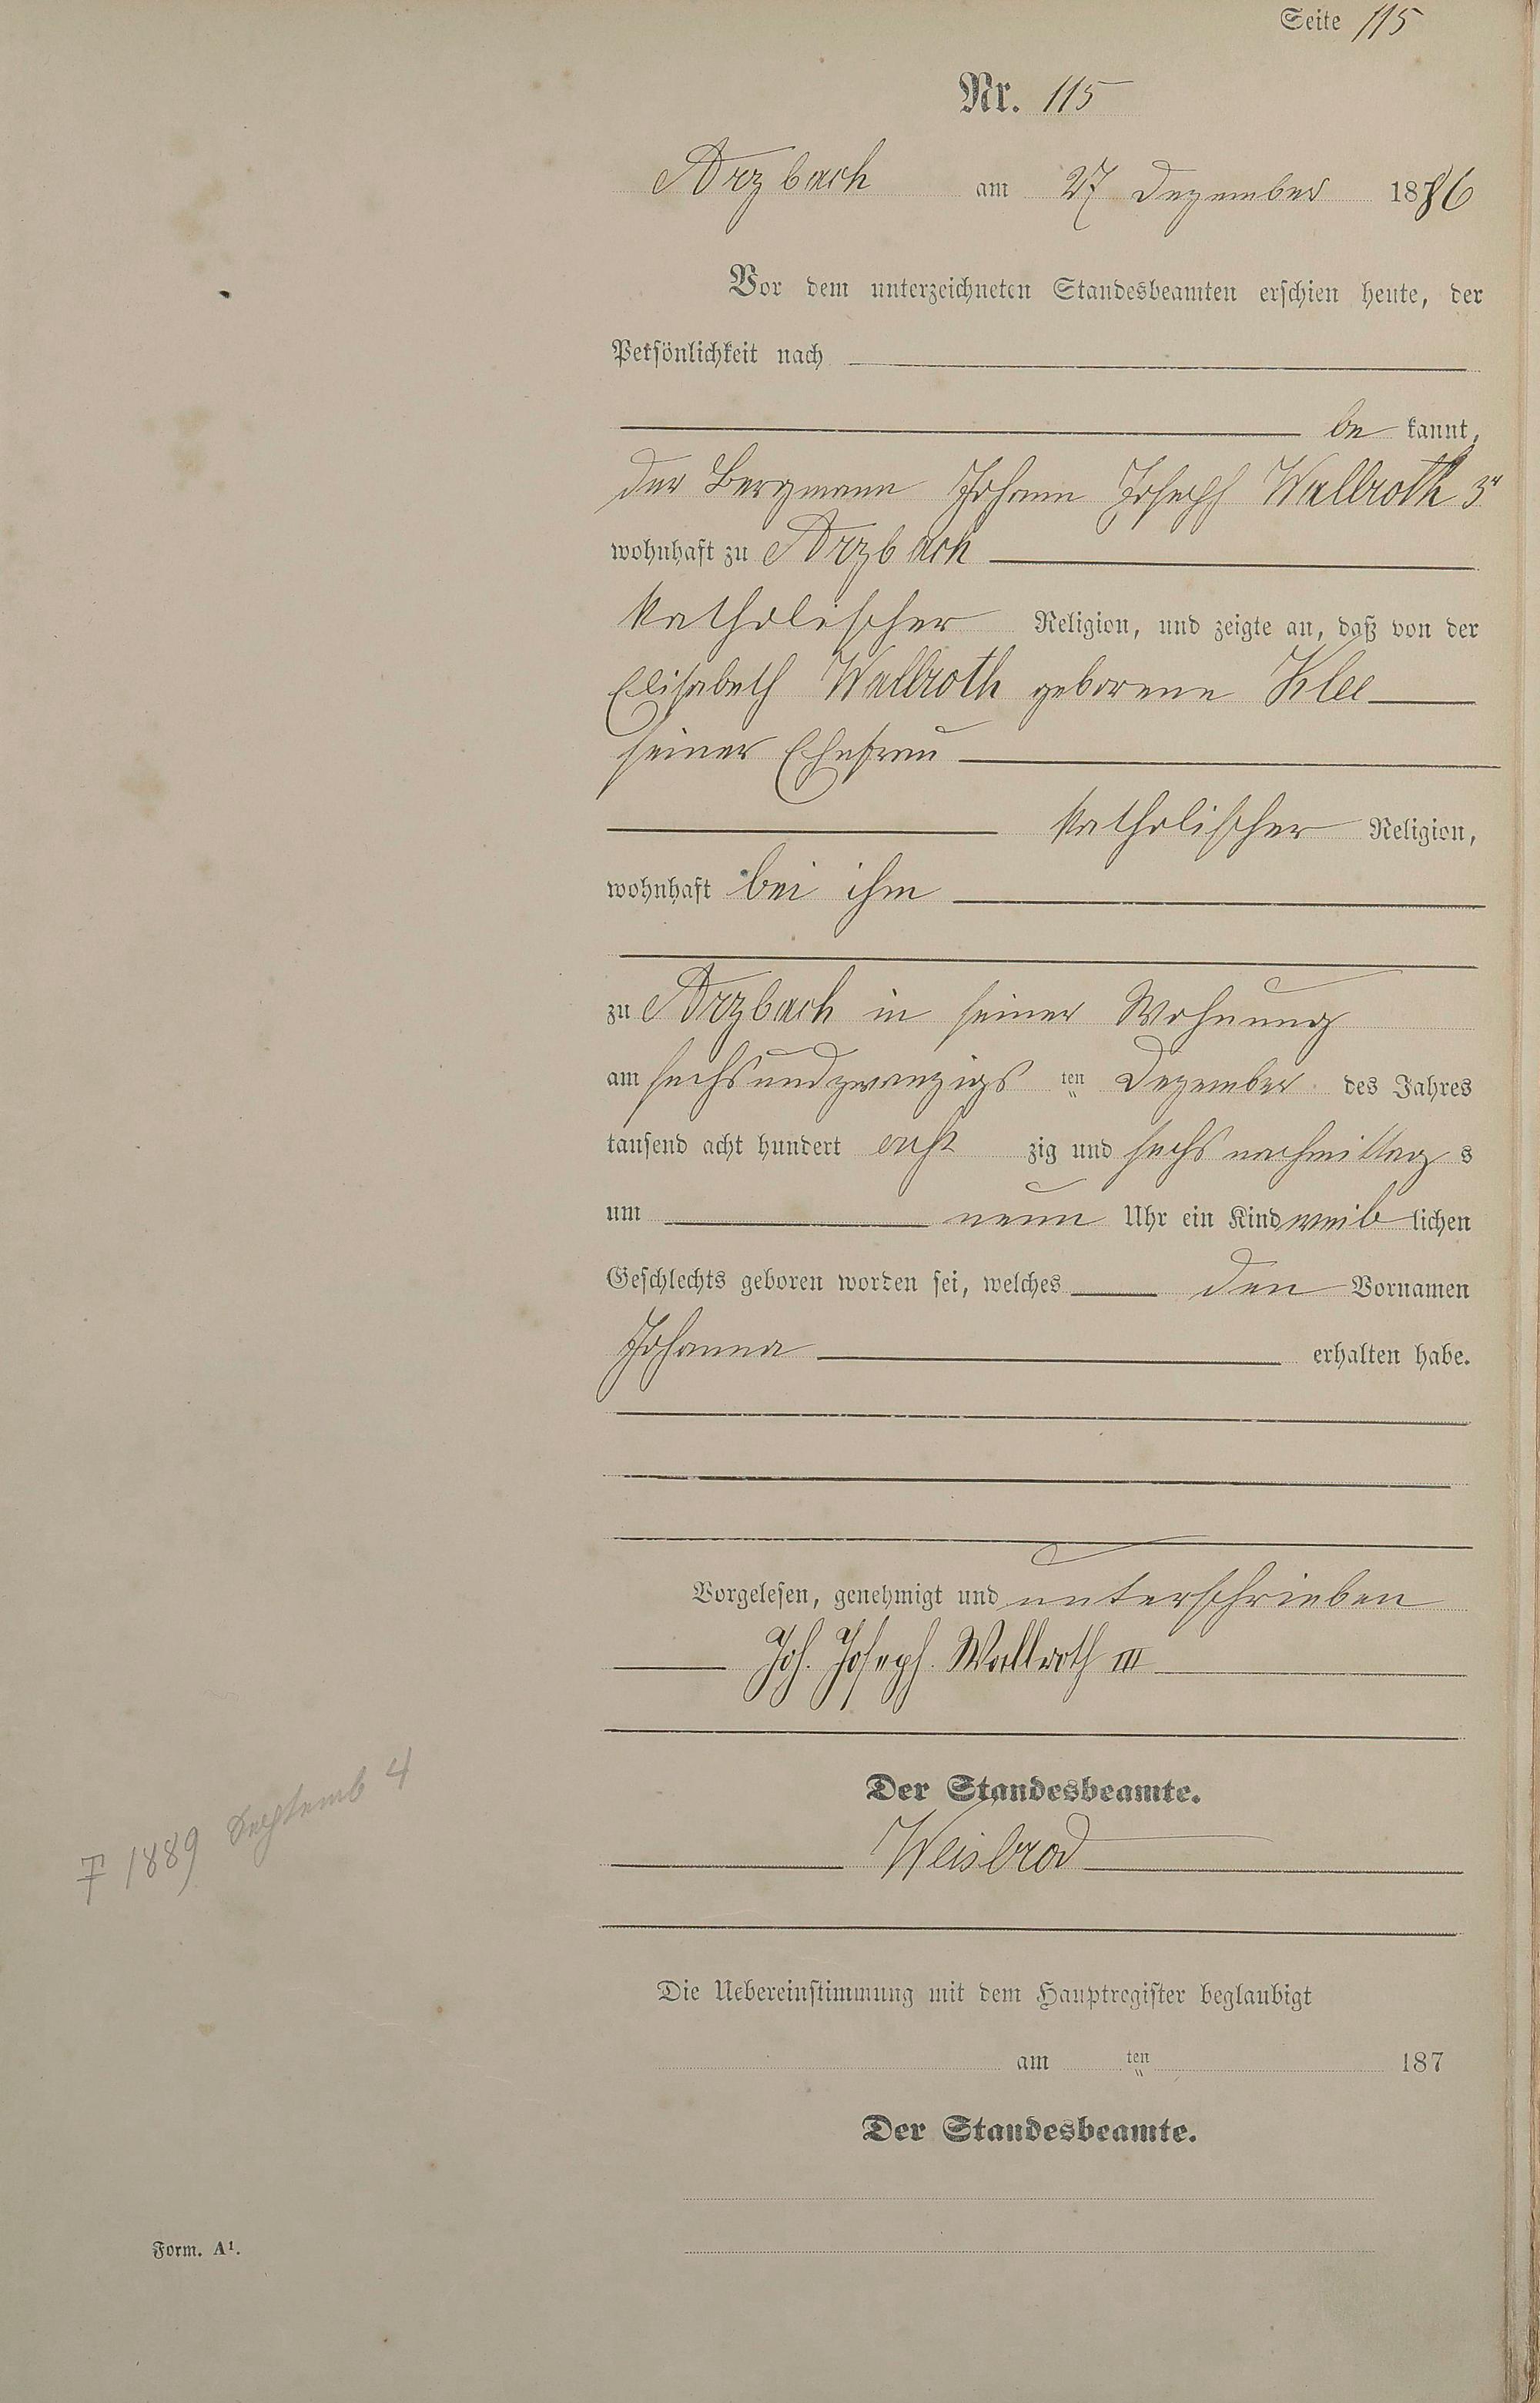 Seite 115
Nr. 115
Arzbach am 27 Dezember 1886
Vor dem unterzeichneten Standesbeamten erschien heute, der
Persönlichkeit nach
be kannt,
der Bergmann Johann Joseph Wallroth 3r
wohnhaft zu Arzbach
katholischer Religion, und zeigte an, daß von der
Elisabeth Wallroth geborene Klee
seiner Ehefrau
katholischer Religion,
wohnhaft bei ihm
zu Arzbach in seiner Wohnung
am sechsundzwanzigs ten Dezember des Jahres
tausend acht hundert acht zig und sechs nachmittag s
um neun Uhr ein Kind weib lichen
Geschlechts geboren worden sei, welches den Vornamen
Johanna erhalten habe.
Vorgelesen, genehmigt und unterschrieben
Joh. Joseph. Wallroth III
Der Standesbeamte.
Weisbrod
† 1889 Septemb 4
Die Uebereinstimmung mit dem Hauptregister beglaubigt
am ten 187
Der Standesbeamte.
Form. A¹.